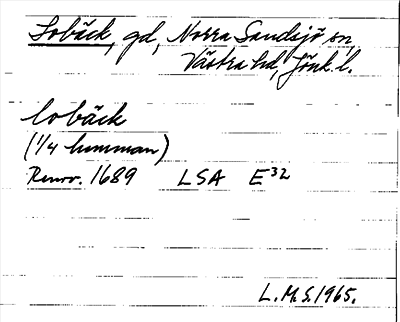 Lobäck, gd, Norra Sandsjö sn,
Västra hd, Jönk. l.
lobäck
(1/4 hemman)
Renov. 1689 LSA E32
L.M.S. 1965.